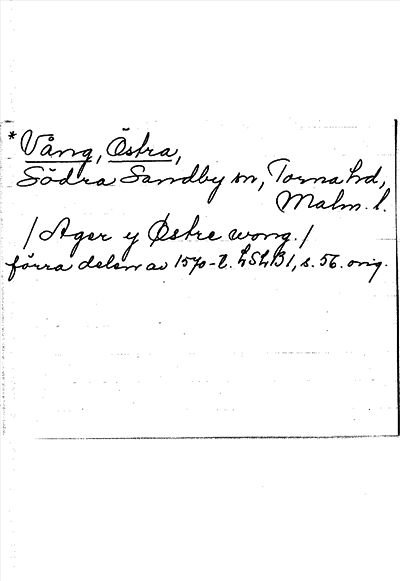 * Vång, Östra,
Södra Sandby sn, Torna hd,
Malm. l.
/ Ager y Østre wong. /
förra delen av 1570-t. LSLB1, s. 56. orig.